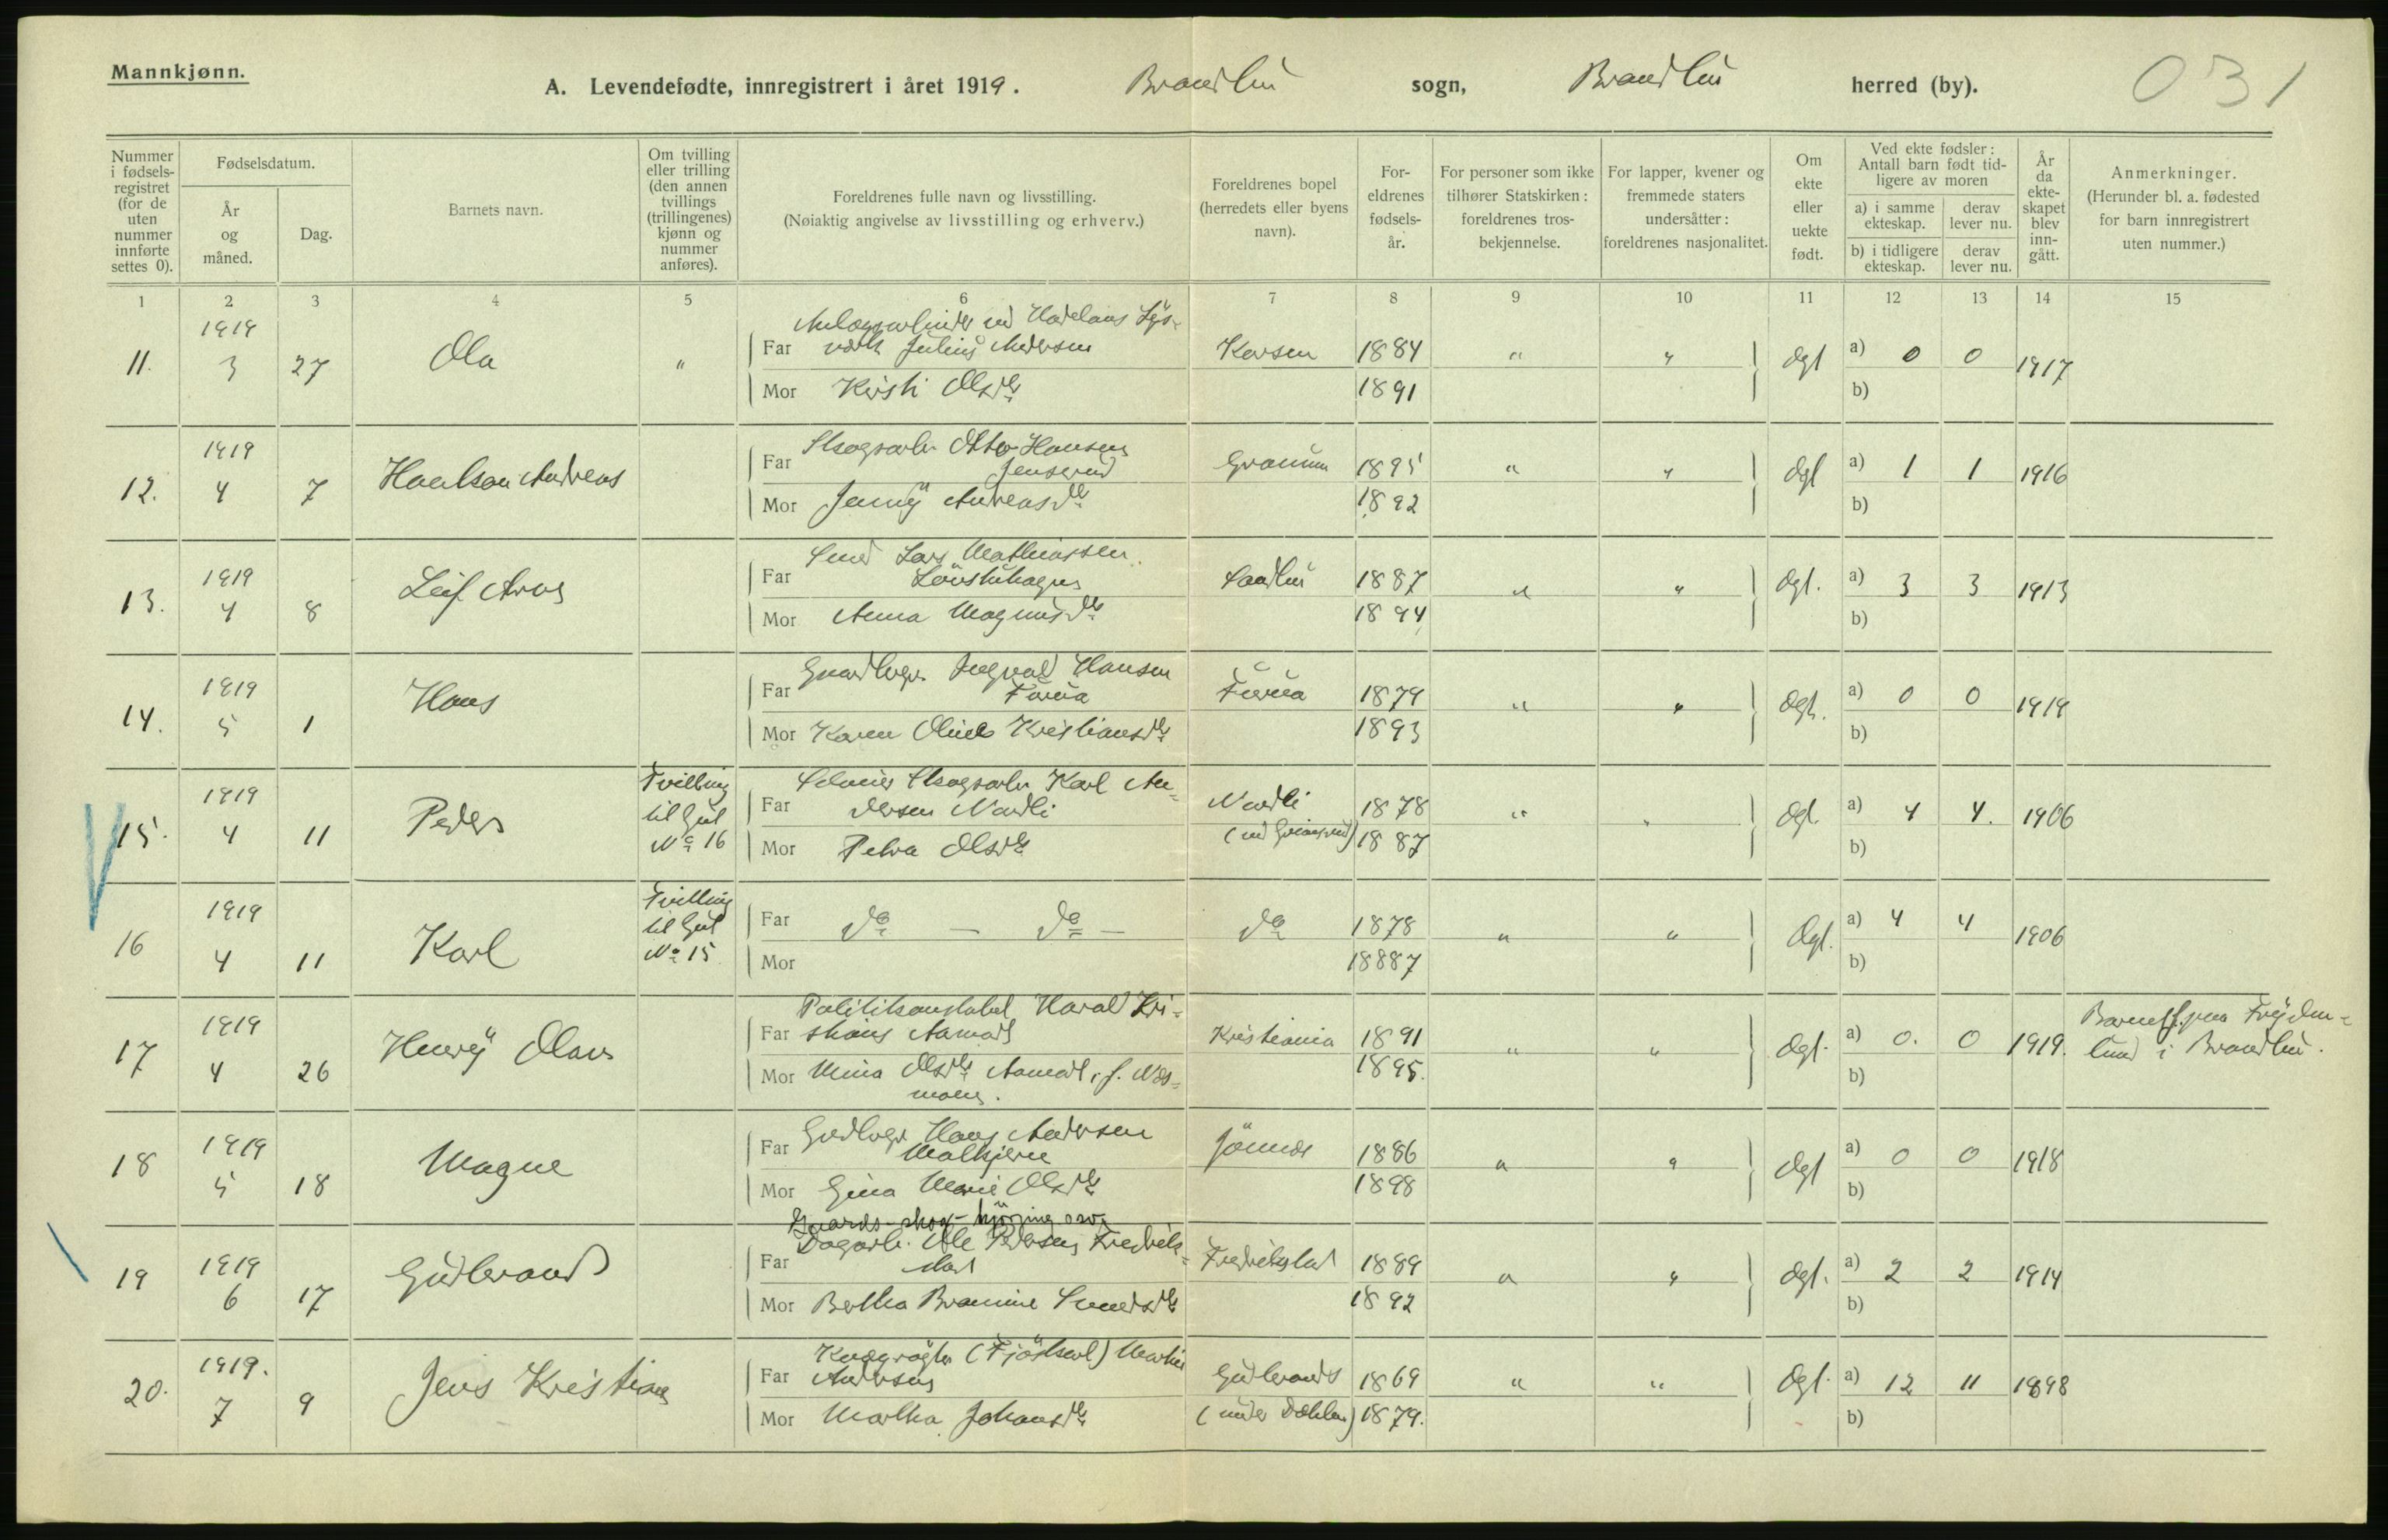 Mannkjønn.
A. Levendefødte, innregistrert i året 1919. Brandbu sogn, Brandbu herred (by). 031
Nummer i fødselsregistret (for de uten nummer innførte settes 0).
Fødselsdatum.
År og måned.
Dag.
Barnets navn.
Om tvilling eller trilling (den annen tvillings (trillingenes) kjønn og nummer anføres).
Foreldrenes fulle navn og livsstilling.
(Nøiaktig angivelse av livsstilling og erhverv.)
Foreldrenes bopel (herredets eller byens navn).
Foreldrenes fødselsår.
For personer som ikke tilhører Statskirken: foreldrenes trosbekjennelse.
For lapper, kvener og fremmede staters undersåtter: foreldrenes nasjonalitet.
Om ekte eller uekte født.
Ved ekte fødsler: Antall barn født tidligere av moren
a) i samme ekteskap. derav lever nu.
b) i tidligere ekteskap. derav lever nu.
År da ekteskapet blev inngått.
Anmerkninger.
(Herunder bl. a. fødested for barn innregistrert uten nummer.)
1 2 3 4 5 6 7 8 9 10 11 12 13 14 15
1919
11. 3 27 Ola "
Anlægsarbeider ved Hadelands
Far Julius Andersen 1884 " " Ogt a) 0 0 1917
Mor Kirsti Olsdtr 1891 b)
1919
12. 4 7 Andreas
Skogsarb. Otto Hansen
Far Jensrud 1895 " " Ogt a) 1 1 1916
Mor Jenny Andreasdtr 1892 b)
1919
13. 4 8 Leif Arne
Smed Lars Mathiassen
Far 1887 " " Ogt. a) 3 3 1913
Mor Anna Magnusdtr 1894 b)
1919
14. 5 1 Hans
Gaardbrger Ingvald Hansen
Far 1879 " " Ogt. a) 0 0 1919
Mor Karen Oline Kristiansdtr 1893 b)
1919
15. 4 11 Peder
Tvilling til Gut No 16
Skogsarb. Karl An-
Far dersen Nordli Nordli 1878 " " Ogt. a) 4 4. 1906
Mor Petra Olsdtr 1887 b)
1919
16 4 11 Karl
Tvilling til Gut No 15
Far do — do — do 1878 " " Ogt. a) 4 4 1906
Mor 18887 b)
1919
17 4 26 Henry Olav
Politikonstabel Harald Kri-
Far stians Aamodt Kristiania 1891 " " Ogt. a) 0. 0 1919.
Mor Mina Olsdtr Aamodt, f. Næs-
moen. 1895. b)
Barnet f. paa Frydenlund i Brandbu.
1919
18 5 18 Magne
Gardbrger Hans Andersen
Far 1886 " " Ogt a) 0 0 1918
Mor Gina Marie Olsdtr 1898 b)
Gaards-skog-kjøring osv.
1919
19 6 17 Gudbrand
Dagarb. Ole Pedersen Fredrik-
Far stad Fredrikstad 1889 " " Ogt. a) 2 2 1914
Mor Bertha Bramine 1892 b)
1919.
20. 7 9 Jens Kristian
Kvægrøgter (Fjøskarl) Martin
Far Andersen 1869 " " Ogt. a) 12 11 1898
Mor Martha Johansdtr (under Dæhlen) 1879. b)